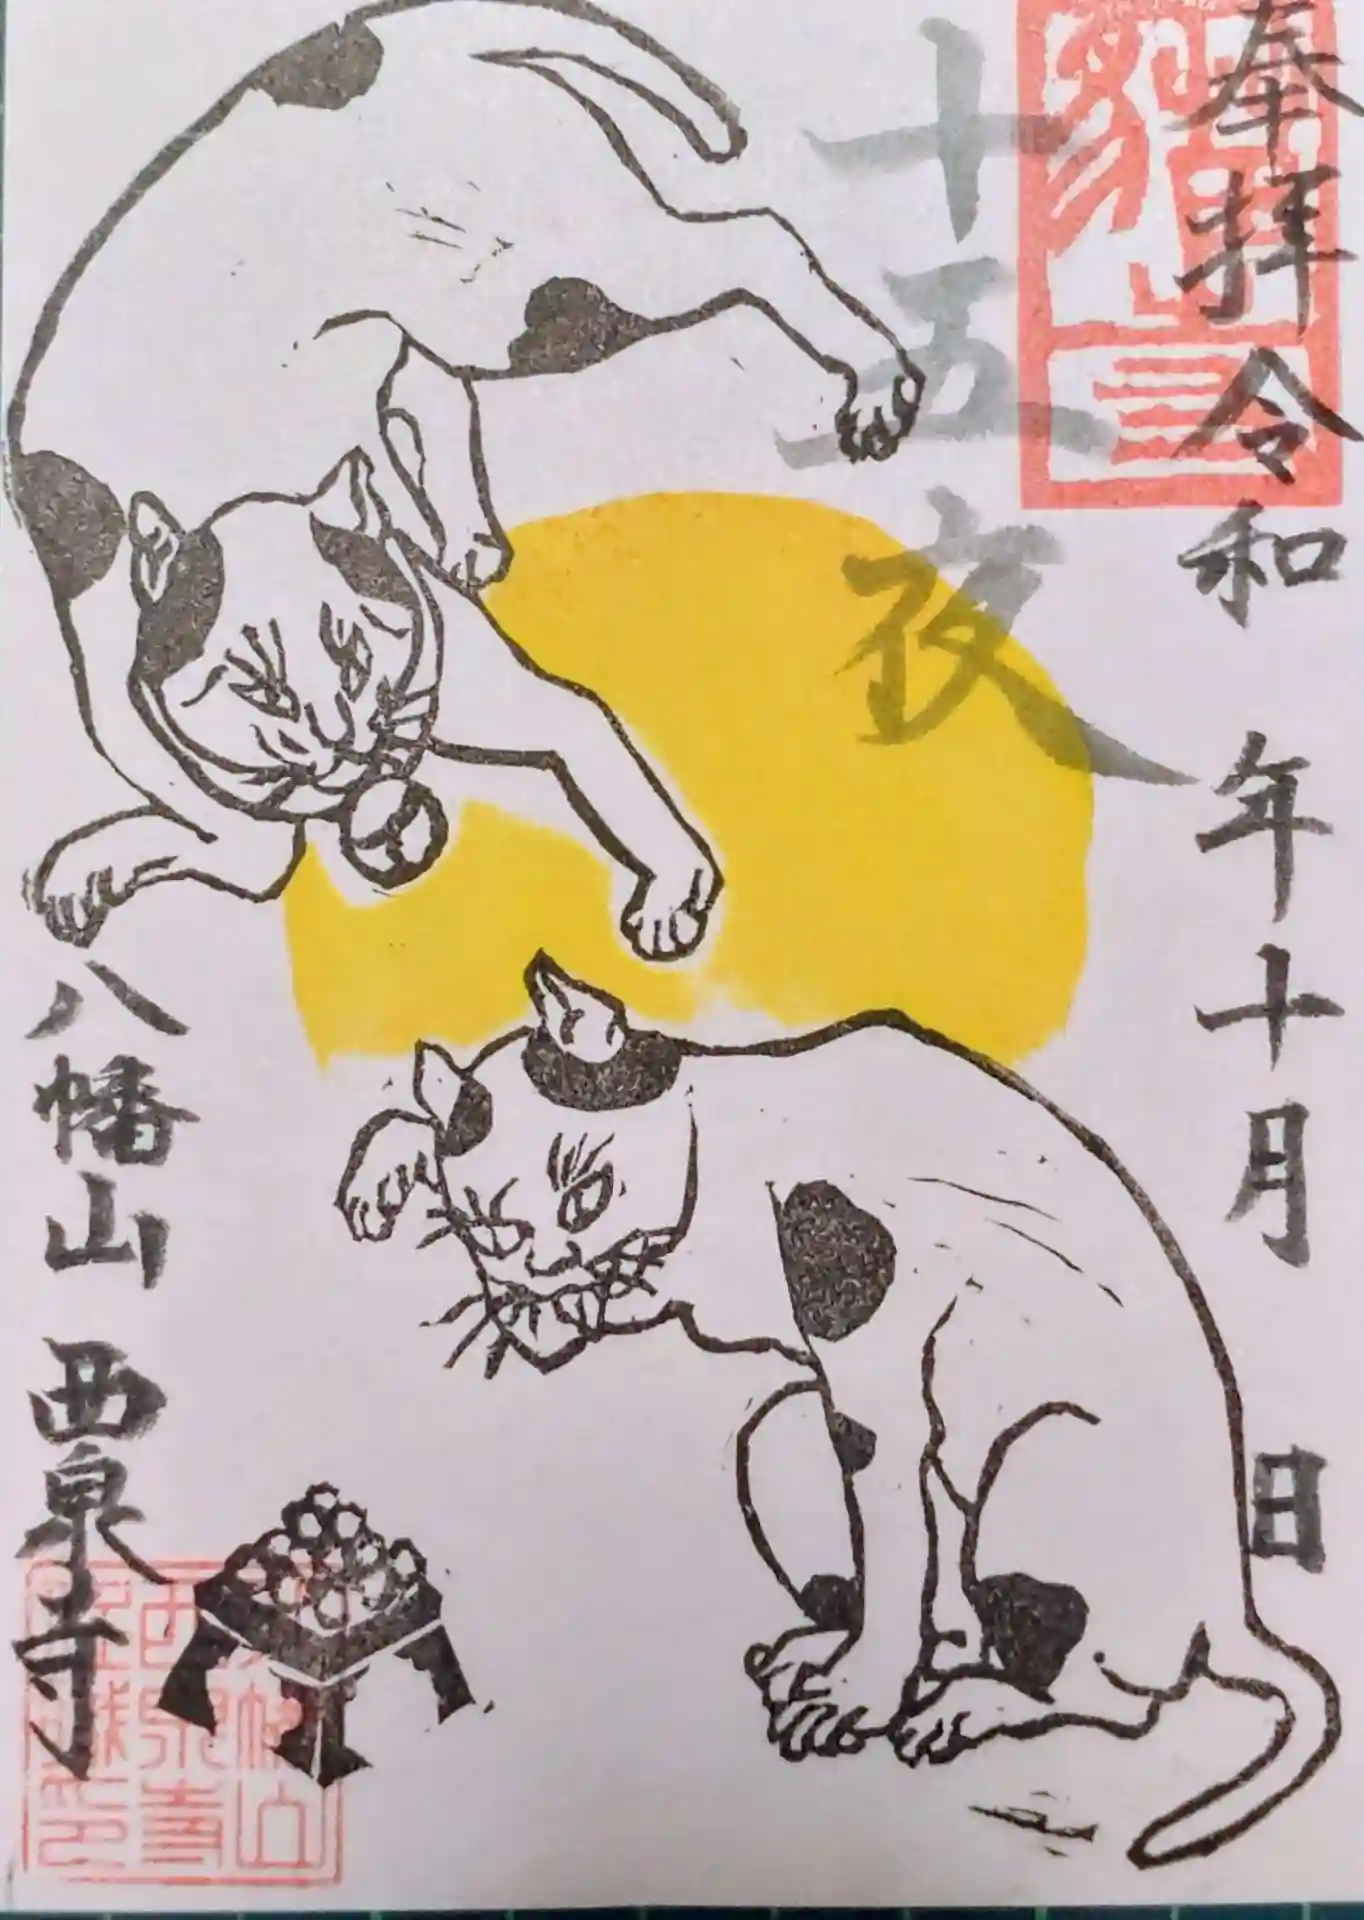 奉拝 令和 年十月 日
十五夜
八幡山 西泉寺